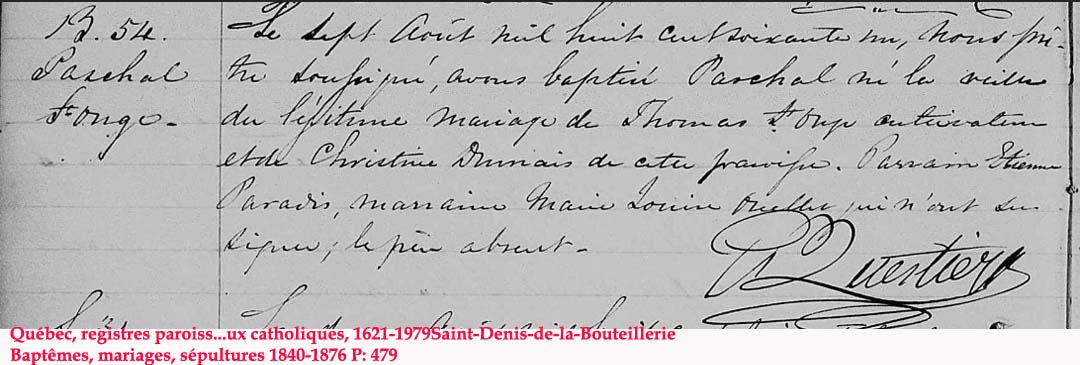 B. 54.
Paschal
St Onge -
Le sept Août mil huit cent soixante un, Nous prê-
tre soussigné, avons baptisé Paschal né la veille
du légitime mariage de Thomas St Onge cultivateur
et de Christine Dumais de cette paroisse. Parrain Etienne
Paradis, marraine Marie Louise Ouellet qui n'ont su
signer; le père absent -
Quertier
Québec, registres paroiss...ux catholiques, 1621-1979Saint-Denis-de-la-Bouteillerie
Baptêmes, mariages, sépultures 1840-1876 P: 479